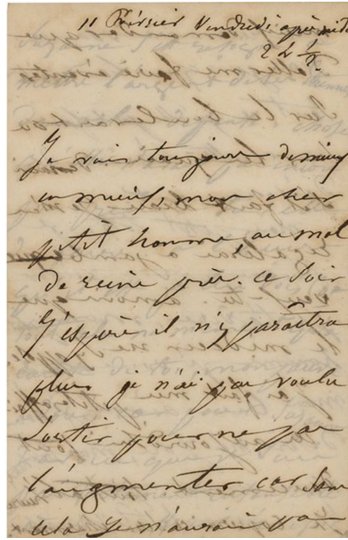 11 Février Vendredi après midi
2 h ½
Je vais toujours de mieux
en mieux, mon cher
petit homme, au mal
de reins près. ce soir
j'espère il n'y paraîtra
plus je n'ai pas voulu
sortir pour ne pas
l'augmenter car sans
cela je n'aurais pas